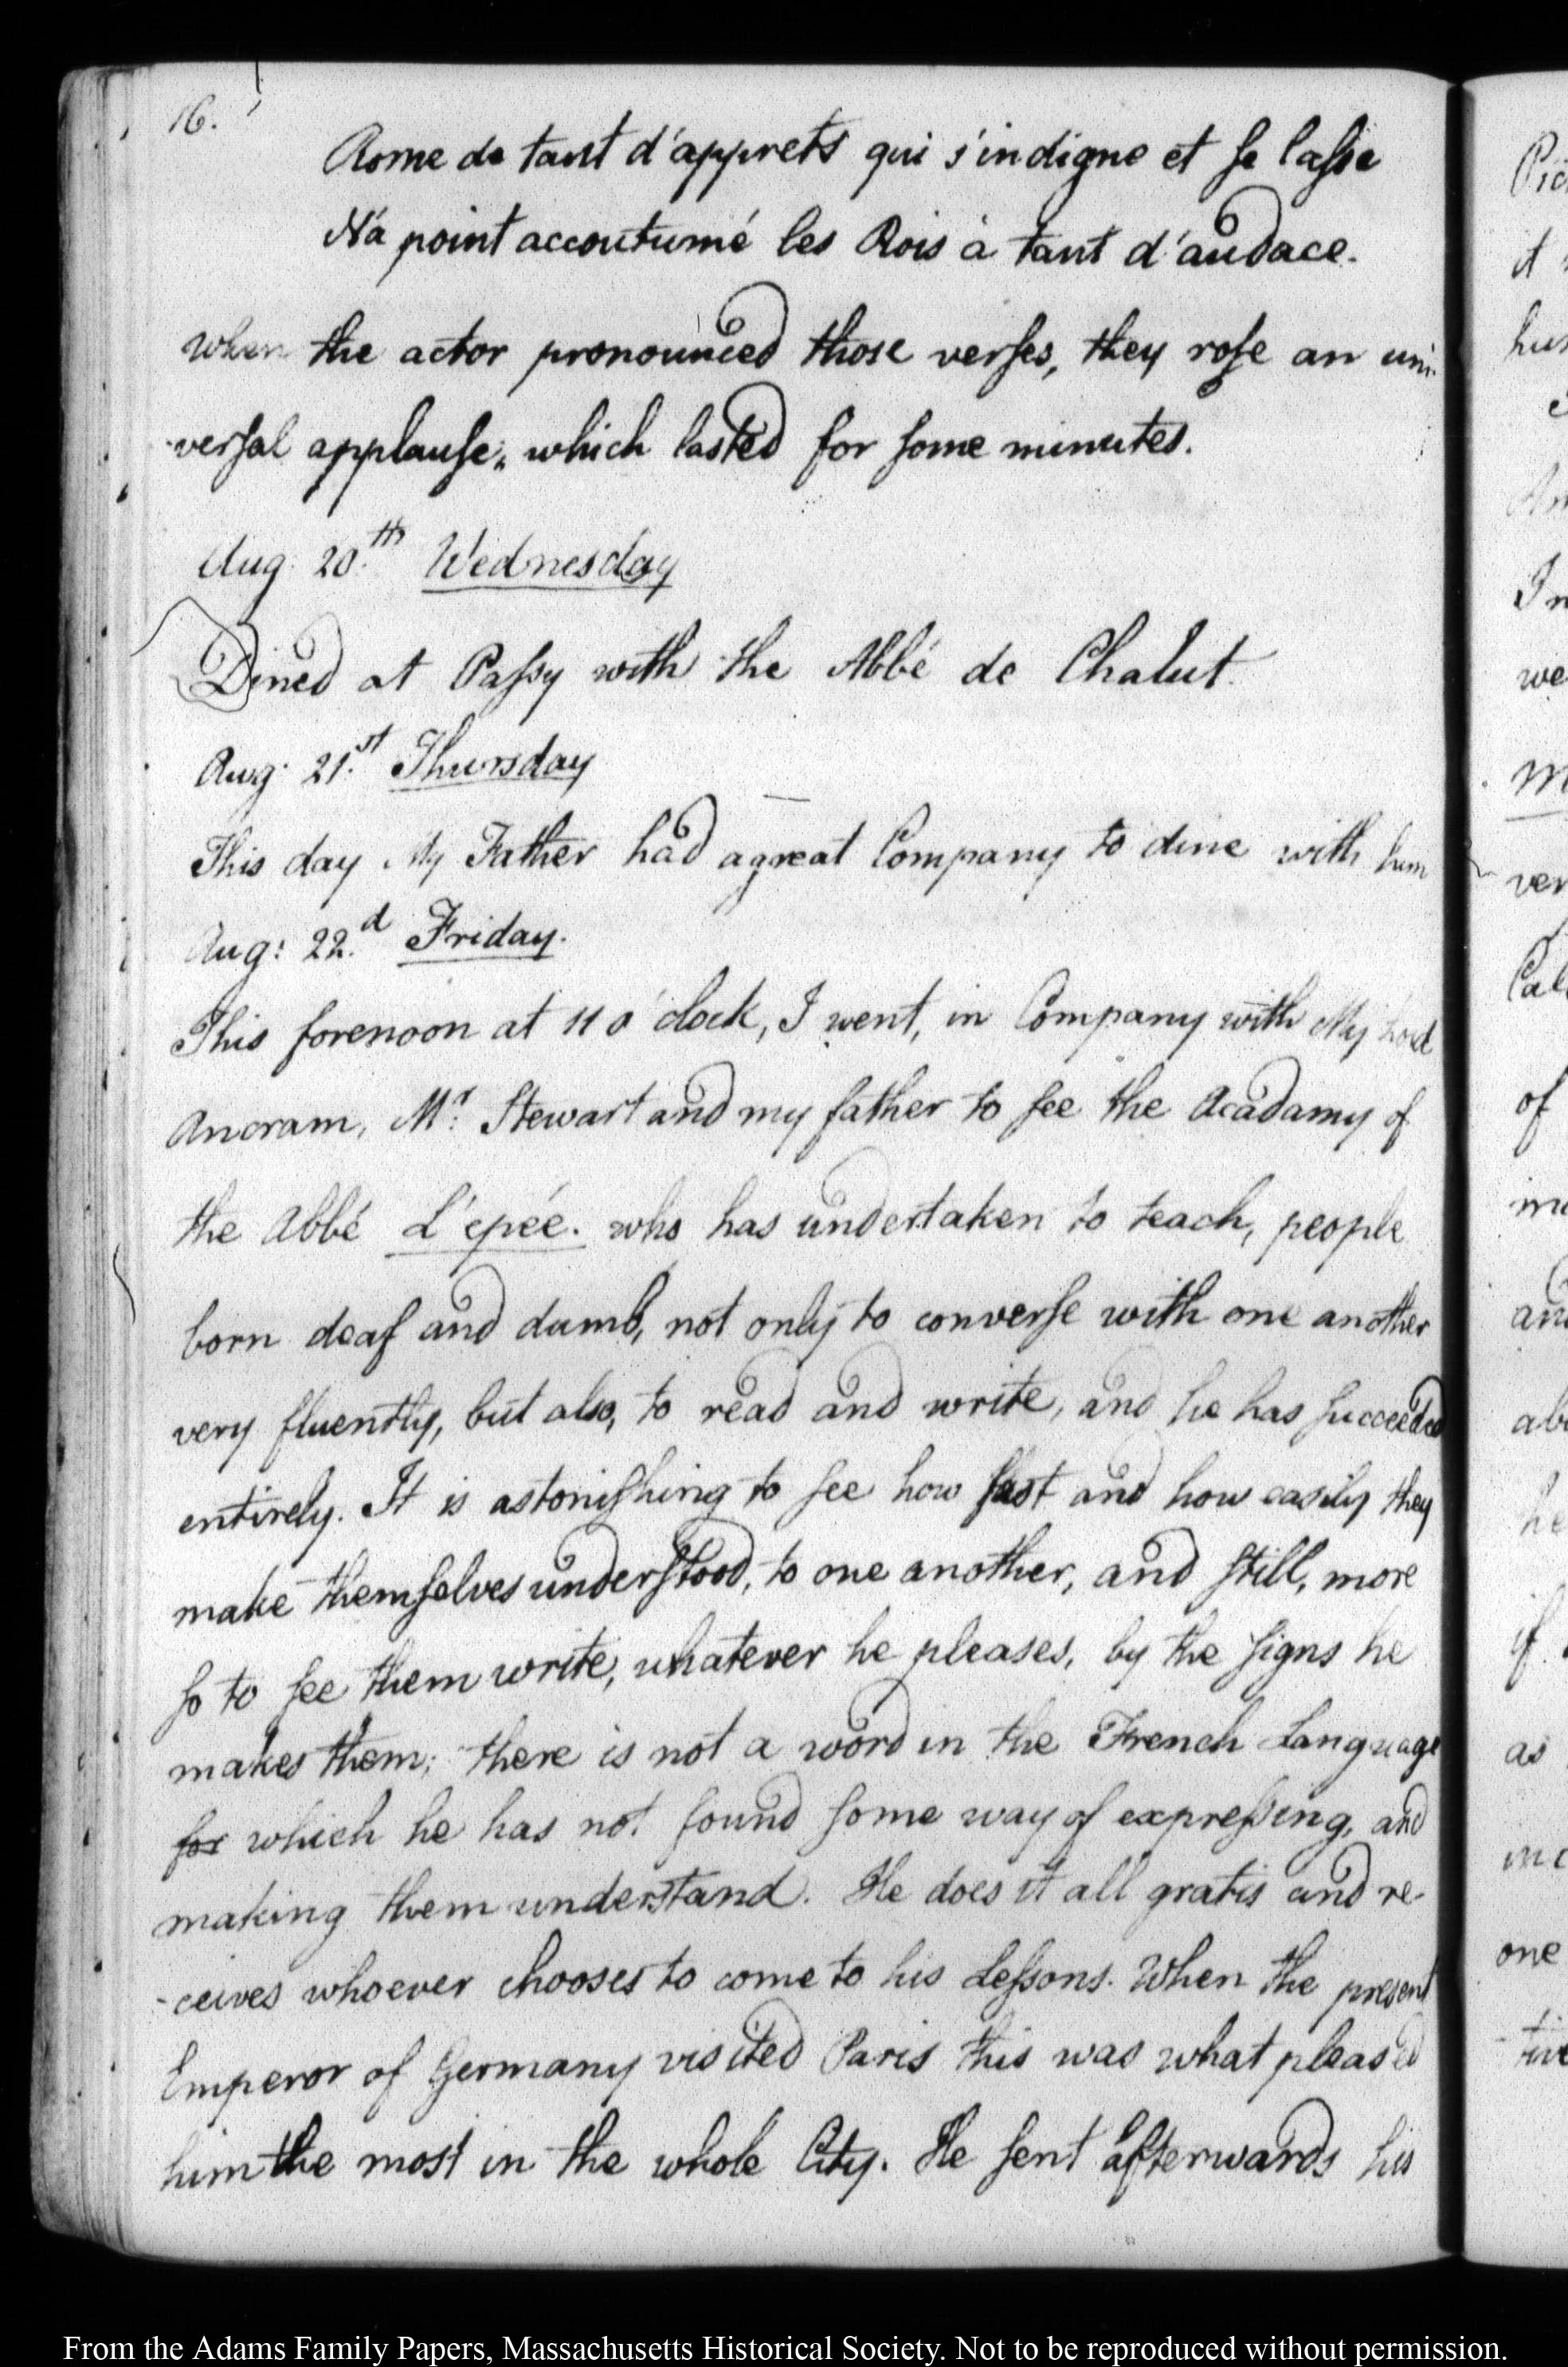 16.
Rome de tant d'apprets qui s'indigne et se lasse
N'a point accoutumé les Rois à tant d'audace.
when the actor pronounced those verses, they rose an uni-
-versal applause, which lasted for some minutes.
Aug: 20.th Wednesday
Dined at Passy with the Abbé de Chalut.
Aug: 21.st Thursday
This day My Father had a great Company to dine with him
Aug: 22.d Friday.
This forenoon at 11 o'clock, I went, in Company with My Lord
Ancram, Mr. Stewart and my father to see the Acadamy of
the Abbé L'épée. who has undertaken to teach, people
born deaf and dumb, not only to converse with one another
very fluently, but also, to read and write, and he has succeeded
entirely. It is astonishing to see how fast and how easily they
make themselves understood, to one another, and still, more
so to see them write, whatever he pleases, by the signs he
makes them; there is not a word in the French Language
for which he has not found some way of expressing, and
making them understand. He does it all gratis and re-
-ceives whoever chooses to come to his Lessons. When the present
Emperor of Germany visited Paris this was what pleas'd
him the most in the whole City. He sent afterwards his
it
we
ver
of
and
he
if
as
one
From the Adams Family Papers, Massachusetts Historical Society. Not to be reproduced without permission.